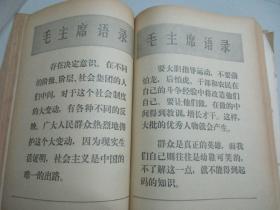 毛主席语录
存在决定意识，在不同
的阶级、阶层、社会集团的人
们中间，对于这个社会制度
的大变动，有各种不同的反
映。广大人民群众热烈地拥
护这个大变动，因为现实生
活证明，社会主义是中国的
唯一的出路。
毛主席语录
要大胆指导运动，不要前
怕龙，后怕虎。干部和农民在
自己的斗争经验中将改造他们
自己。要让他们做，在做的中
间得到教训，增长才干。这样，
大批的优秀人物就会产生。
群众是真正的英雄，而我
们自己则往往是幼稚可笑的，
不了解这一点，就不能得到起
码的知识。